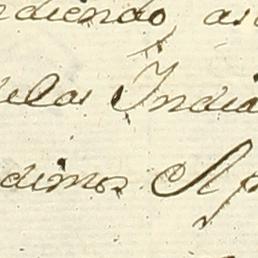 ndiendo, as
delas India
dimos A p